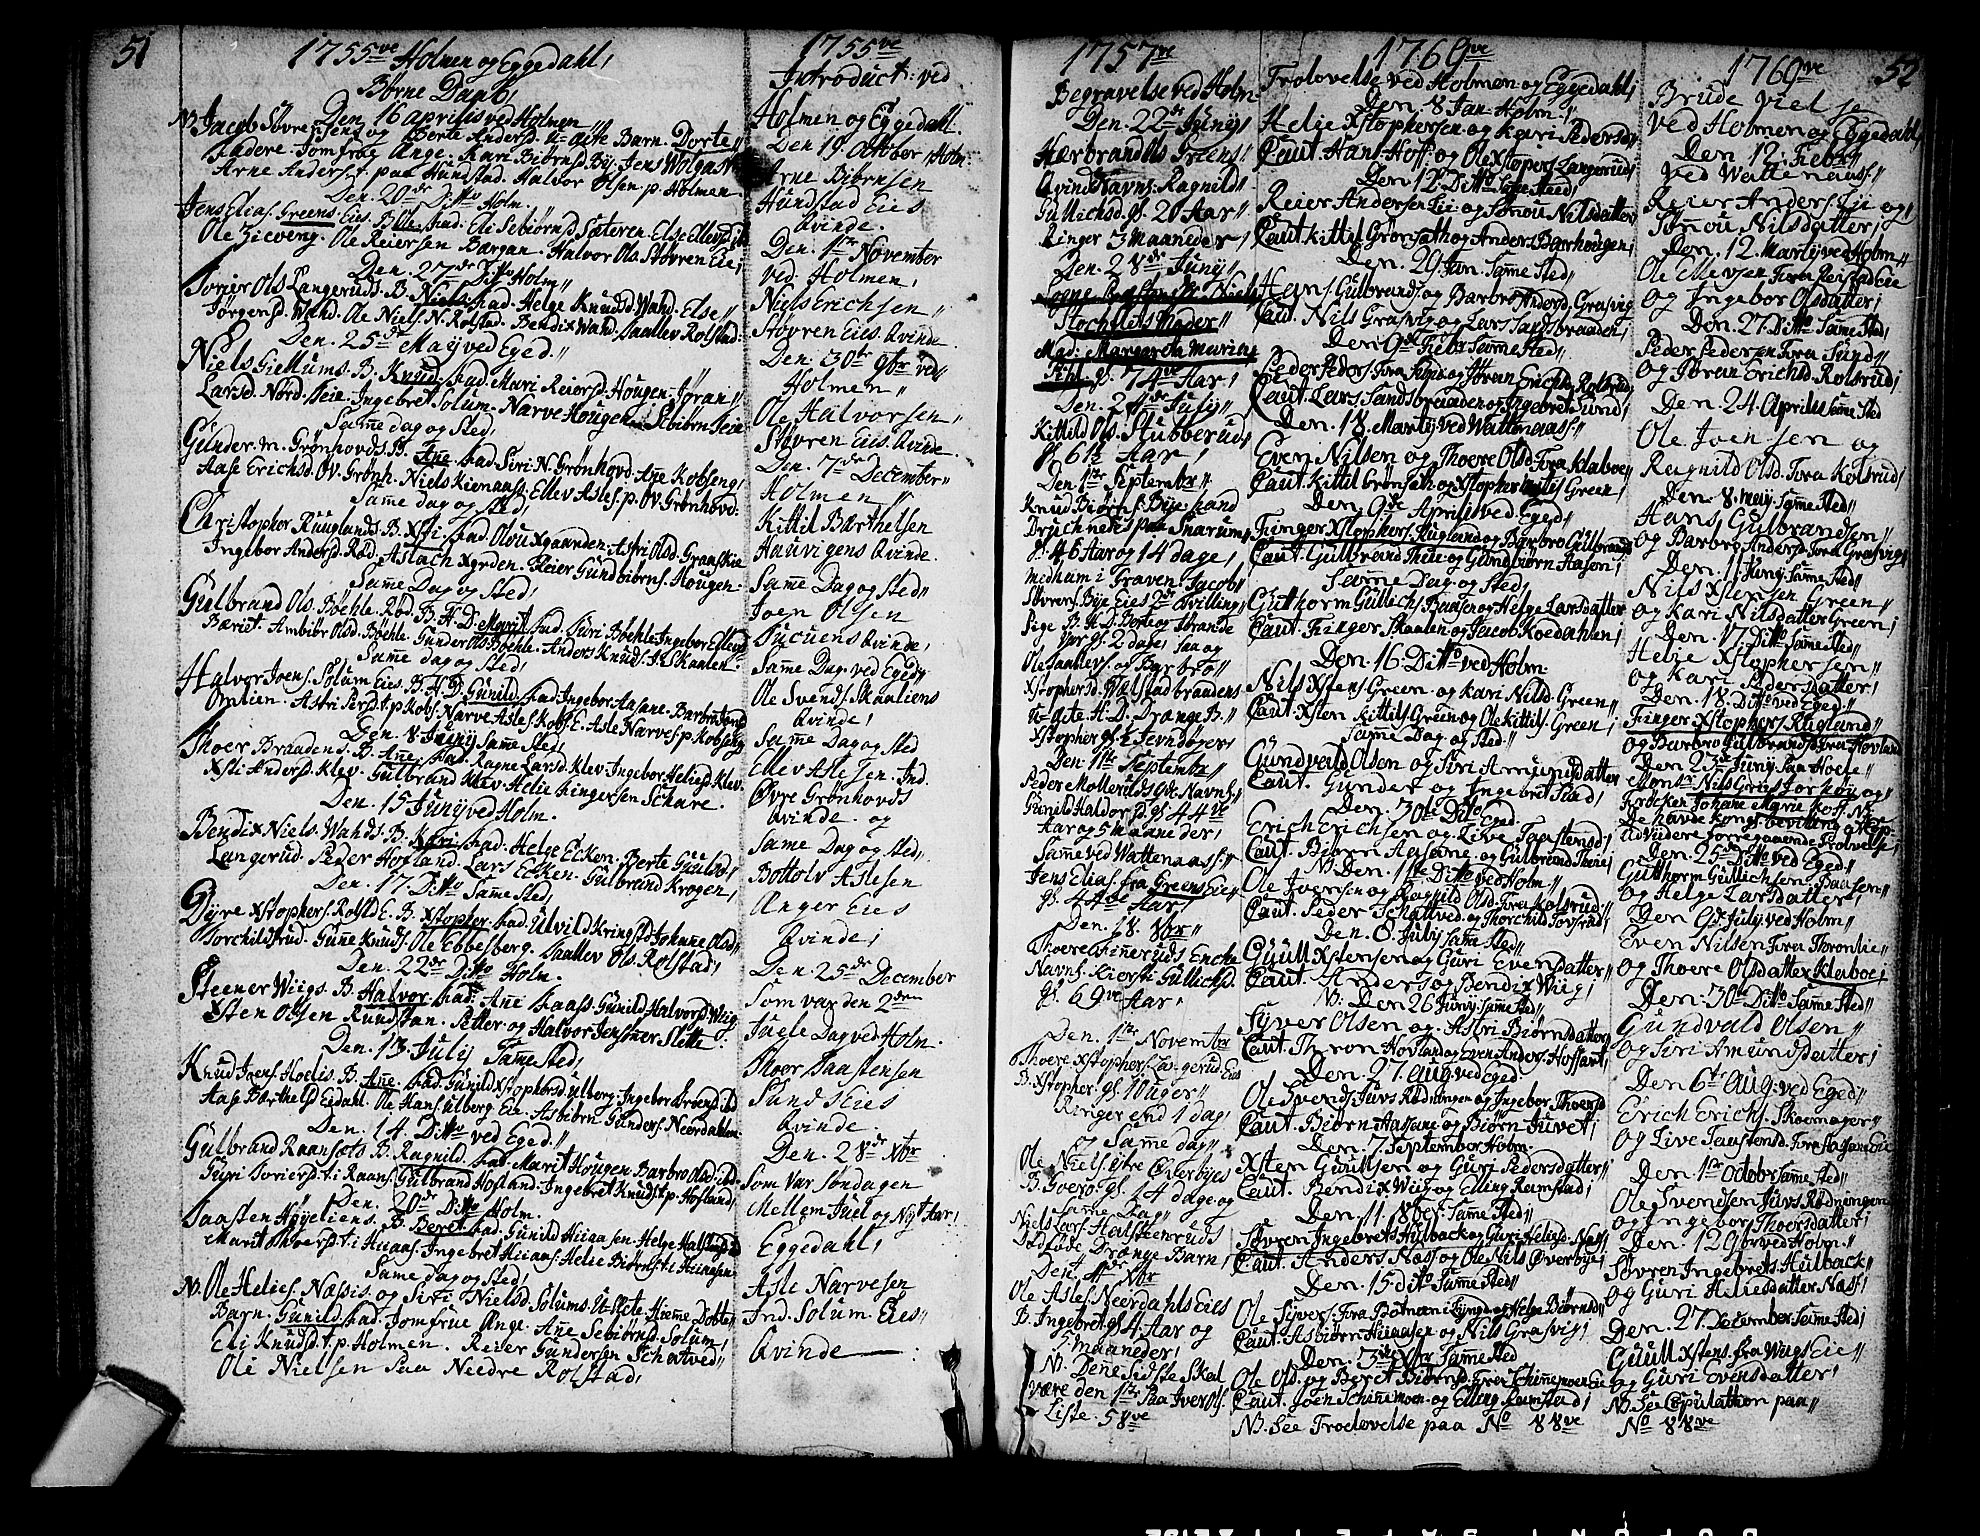 51
1755ve Holmen og Eggedahl,
Børne Daab,
Den 16 aprilis ved Holmen
NB. Jacob Søvrensens og Berte Anders. U-ægte Barn. Dorte
fadere. Jomfrue Ange. Kari Biørnsd Bÿ. Jens Wolgast
Arne Anderss. t. paa Hunstad. Halvor Olsen p. Holmen
Den. 20de Ditto Holm.
Jens Elias. Greens. Eies. B. had. Eli Sebiørnsd Sæteren. Else Ellevsd ibd
Ole Ziøveng. Ole Reiersen Bærgan. Halvor Ols. Støvren Eie,
Den. 27de Ditto Holm
Torier Ols Langeruds. B. Niels. had. Helge Knudsd Wahd. Else
Jørgensd. Wahd. Ole Niels. N. Rolstad. Bendix Wahd. Saallev Rolstad.
Den. 25de Maÿ ved Eged.
Niels Giellums. B. Knud. had. Mari Reiersd. Hougen. Jøran
Larsd. Nørd. Seie. Ingebret Solum. Narve Hougen. Sebiørn Seie
Same dag og Sted,
Gunder. m. Grønhovds. B. Ane. had. Siri N. Grønhovd. Ane Kobseng,
Aase Erichsd. Øv. Grønh. Niels Kiennaas. Ellev Asles. p. Øv. Grønhovd.
Same dag og Sted,
Christopher Ruuglands. B. Xsti. had. Olou Xgaarden. Astri Olsd. Graaskie
Ingebor Andersd. Rød. Aslach Xgrden. Reier Gundbiørns. Hougen.
Same Dag og Sted,
Gulbrand Ols. Bøehle. Rød. B. H. D. Marit. had. Siri Bøehle. Ingebor Ellevsd
Bæriet. Ambiør Olsd. Bøehle. Gunder Ols Bøehle. Anders Knuds. Skaalen.
Same dag og Sted,
Halvor Joens. Solum Eies. B. H. D. Gunild. had. Ingebor Aasane. Barbro
Omlien. Astri Persd. t. p Kobs. Narve Asles. Kobs. E. Asle Narves. p. Kobseng
Den. 8 Junÿ Same Sted,
Thoer Braadens. B. Ane. had. Ragne Larsd. Klev. Ingebor Heliesd Klev.
Xsti Andersd. Klev. Gulbrand Klev Helie Fingersen Schare.
Den. 15 Junÿ ved Holm.
Bendix Niels. Wahds. B. Kari. had. Helge Ecken. Berte Guulsd.
Langerud. Peder Hofland. Lars Ecken. Gulbrand Krogen,
Den. 17 Ditto Same Sted,
Dyre Xstophers. Rolstd E. B. Xstopher. had. Ulvild Kringstd. Johane Olsd
Torchildsrud. Gune Knuds. Ole Ebbesberg. Saallev Ols. Rolstad,
Den. 22de Ditto Holm.
Steener Wiigs. B. Halvor. had. Ane Saass. Gunild Halvorsd. Wiig.
Xsten Olsen Rundstan. Petter og Halvor Jenssner Slette.
Den. 13 Julÿ Same Sted,
Knud Joens. Hoelis. B. Ane. had. Gunild Xstophersd. Ulberg. Ingebor Arvesd. ibd
Aase Barthelsd Eidahl. Ole Hans. Ulberg. Eie. Asbiørn Gunders. Neerdahlen.
Den. 14. Ditto ved Eged.
Gulbrand Raansæts B. Ragnild. had. Marit Hougen. Barbro Olsd. ibd.
Guri Toriersd. t. i Raans. Gulbrand Hofland. Ingebret Knuds. t. p. Hofland,
Den. 20de Ditto Holm.
Taasten Høyeliens. B. Beret. had. Gunild Hiiaasen. Helge Hallensd
Marit Thoersd. t. i Hiiaas. Ingebret Hiiaas. Helie Biørns. t. i Hiiaasen.
Same dag og Sted,
NB. Ole Helies. Næssis. og Siri Nielsd. Solums. U-ægte Hieme Døbte
Barn. Gunild. had. Jomfrue Ange. Ane Sebiørnsd. Solum,
Eli Knudsd. t. p. Holmen. Reier Gundersen Schatved
Ole Nielsen Paa Needre Rolstad,
1755ve
Introduct: ved
Holmen og Eggedahl.
Den 19. October Holm.
Arne Biørnsen
Hundstad Eies
Qvinde.
Den. 1te November
ved. Holmen,
Niels Erichsen
Støvren Eies. Qvinde.
Den. 30te 9br ved
Holmen
Ole Halvorsen
Støvren Eies. Qvinde.
Den. 7de December
Holmen
Kittil Barthelsen
Hauvigens Qvinde.
Same Dag og Sted
Joen Olsen
Qvinde,
Same Dag ved Eged
Ole Svends. Skaaliens
Qvinde,
Same Dag og Sted
Ellev Aslesen. Ind.
Øvre Grønhovds
Qvinde. og
Same Dag og Sted
Bottolv Aslesen
Anger Eies
Qvinde,
Den. 25de December
Som var den 2den
Jugle Dag ved Holm.
Thoer Taastensen
Sunds Eies
Qvinde.
Den. 28de Xbr
Som Var Søndagen
Mellem Juel og Nyt Aar,
Eggedahl,
Asle Narvesen
Ind. Solum Eies
Qvinde
1757ve
Begravelse ved Holm
Den. 22de Junÿ
Hærbrandts Greens
Qvinde Navns. Ragnild
Gullichsd. gl. 20 Aar
Ringer 3 Maaneder,
Den. 28de Junÿ
Stochfleths Moder
Mad: Margareta Maria
gl. 74ve Aar,
Den. 24de Julÿ
Kittild Ols. Stubberud,
gl. 61te Aar,
Den 1te Septembr
Knud Biørns. Bye. hand
Druchnede paa Snarum,
gl. 46 Aar og 14 dage,
Medham i Graven. Jacob
Søvrens. Bye Eies 2de Tvilling
Pige B. H. D. Børte og Strande
gl. 2 dage. saa og
Ole Saallevs. og Barbro
Xstophersd. Wælstadbraadens
U-ægte H. D. Drænge B.
Xstopher gl. 2 Jevndøger
Den 11te Septembr
Peder Mollerud Qde Navns.
Gunild Haldorsd. gl. 44ve
Aar og 5 Maaneder,
Same ved Wattenaas.
Jens Elias. fra Greens Eie
gl. 44de Aar,
Den. 18. 8br
Thoere Finneruds Encke
Navns. Kiersti Gullichsd.
gl. 69ve Aar,
Den. 1te Novembr
Thoere Xstophers. Langerud Eies
B. Xstopher. gl. 10 Uger
Ringer end 1 dag
og Same dag
Ole Niels. ÿtre Øverbÿes
B. Goero. gl. 14 dage og
Same Dag
Niels Lars. Halsteenruds
Dødføde Drænge Barn,
Den. Xbr
Ole Asles. Neerdahls Eies
B. Ingebret gl. 4 Aar og
5 maaneder,
NB. Dene Sidste Skal
være den 1te Paa Iver Ols.
Liste. 58ve
1769ve
Trolovelse ved Holmen og Eggedahl,
Den. 8 Jan. Holm.
Helie Xstophersen og Kari Pedersd
Caut. Hans Hoff. og Ole Xstopers. Langerud,
Den. 12 Ditto Same Sted,
Reier Andersen Lie og Sønou Nilsdatter
Caut. Kittil Grønsæth og Anders Barhougen,
Den. 29 Jan. Same Sted,
Hans. Gulbrands. og Barbro Andersd. Grasvig
Caut. Nils Grasvig og Lars Sandsbraaden,
Den. 9de Febr Same Sted,
Peder Peders. Fra Sund og Jøran Erichsd. Rolsrud
Caut. Lars Sandsbraaden og Ingebret Sund,
Den. 18. Martÿ ved Wattenaas
Even Nilsen og Thoere Olsd. Fra Klaboe
Caut. Kittil Grønsæth og Xstopher Green,
Den. 9de Aprilis ved. Eged,
Finger Xstophers. Rugland og Barbro Gulbrandsd
Caut. Gulbrand Theie og Gundbiørn Aasen,
Same Dag og Sted,
Guthorm Gullichs. Baasen og Helge Larsdatter
Caut. Finger Skaalen og Jacob Koedahlen,
Den. 16. Ditto ved Holm.
Nils Xstens. Green. og Kari Nilsd. Green
Caut. Xsten Kittils. Green og Ole Kittils. Green,
Same Dag og Sted
Gundvald Olsen og Siri Amundsdatter
Caut. Gunder og Ingebret Stad,
Den. 30te Dito Eged.
Erich Erichsen og. Live Taastensd,
Caut. Biørn Aasane. og Gulbrand Theie,
NB. Den. 11te Ditto ved Holm
Ole Joensen og Ragnild Olsd. Fra Kolsrud.
Caut. Peder Schattved. og Thorchild Tovsrud,
Den. 8 Julÿ Same Sted
Guull Xstensen og Guri Evensdatter
Caut. Anders og Bendix Wiig,
NB: Den 26 Junÿ Same Sted
Syver Olsen og. Astri Biørnsdatter
Caut. Thron Hovland og Even Anders. Hoffart,
Den. 27. Aug. ved Eged.
Ole Svends. Juvs Rødningen og Ingebor Thoersd
Caut. Biørn Aasane og Biørn Juvet,
Den. 7. September Holm.
Xsten Guullsen og Guri Pedersdatter
Caut. Bendix Wiig og Elling Ramstad,
Den. 11. 8br. Same Sted,
Søvren Ingebrets. Hulback og Guri Heliesd. Næss
Caut. Anders Næss og Ole Nils. Øverbye,
Den. 15 Dito Same Sted
Ole Syvers. Fra Botnen i Lyngd. og Helge Biørnsd
Caut. Asbiørn Hiiaasen og Nils Grasvig,
Den. 3die Xbr Same Sted
Ole Ols. og Beret Biørnsd. Fra Schimemoen Eie
Caut. Joen Schimemoen og Elling Ramstad,
NB. See Trolovelse paa No 88ve
1769ve
52
Brude Vielse
ved Holmen og Eggedahl,
Den. 12. Febr
ved Wattenaas.
Reier Anders. Lie og
Sønou Nilsdatter,
Den. 12. Martÿ ved Holm
Ole Ellevsen Fra Reistad Eie
og Ingebor Olsdatter,
Den. 27. Ditto Same Sted,
Peder Pedersen Fra Sund
og Jøran Erichsd. Rolsrud,
Den. 24. Aprilis Same Sted
Ole Joensen og
Ragnild Olsd. Fra Kolsrud,
Den. 8. Maÿ Same Sted,
Hans Gulbrandsen
og Barbro Andersd. Fra Grasvig,
Den. 11 Junÿ Same Sted
Nils Xstensen Green
og Kari Nilsdatter Green,
Den. 17 Ditto Same Sted
Helie Xstophersen
og Kari Pedersdatter,
Den 18. Ditto ved Eged
Finger Xstophers. Rugland
og Barbro Gulbrandsd Fra Hovland
Den 23de Junÿ Paa Hoele
Monsr Nils Gries Torkou og
Frøcken Johane Marie Koss. NB.
De havde kongl. bevilling at Kop.
ud vuidere forregaaende Trolovelse,
Den. 25de Ditto ved Eged
Guthorm Gullichsen Baasen
og Helge Larsdatter,
Den 9de Julÿ ved Holm
Even Nilsen Fra Thronlie
og Thoere Olsdatter Klaboe,
Den. 30te Ditto Same Sted
Gundvald Olsen
og Siri Amundsdatter,
Den 6te Aug. ved Eged
Erich Erichs. Skoemager
og Live Taastensd. Fra Eie
Den. 1te Octobr Same Sted
Ole Svendsen Juvs Rødningen
og Ingebor Thoersdatter,
Den. 12 9br ved Holm.
Søvren Ingebrets. Hulback
og Guri Heliesdatter Næss,
Den. 27. December Same Sted,
Guull Xstens. fra Wiigs Eie
og Guri Evensdatter,
NB. See Copulation paa
No 88ve